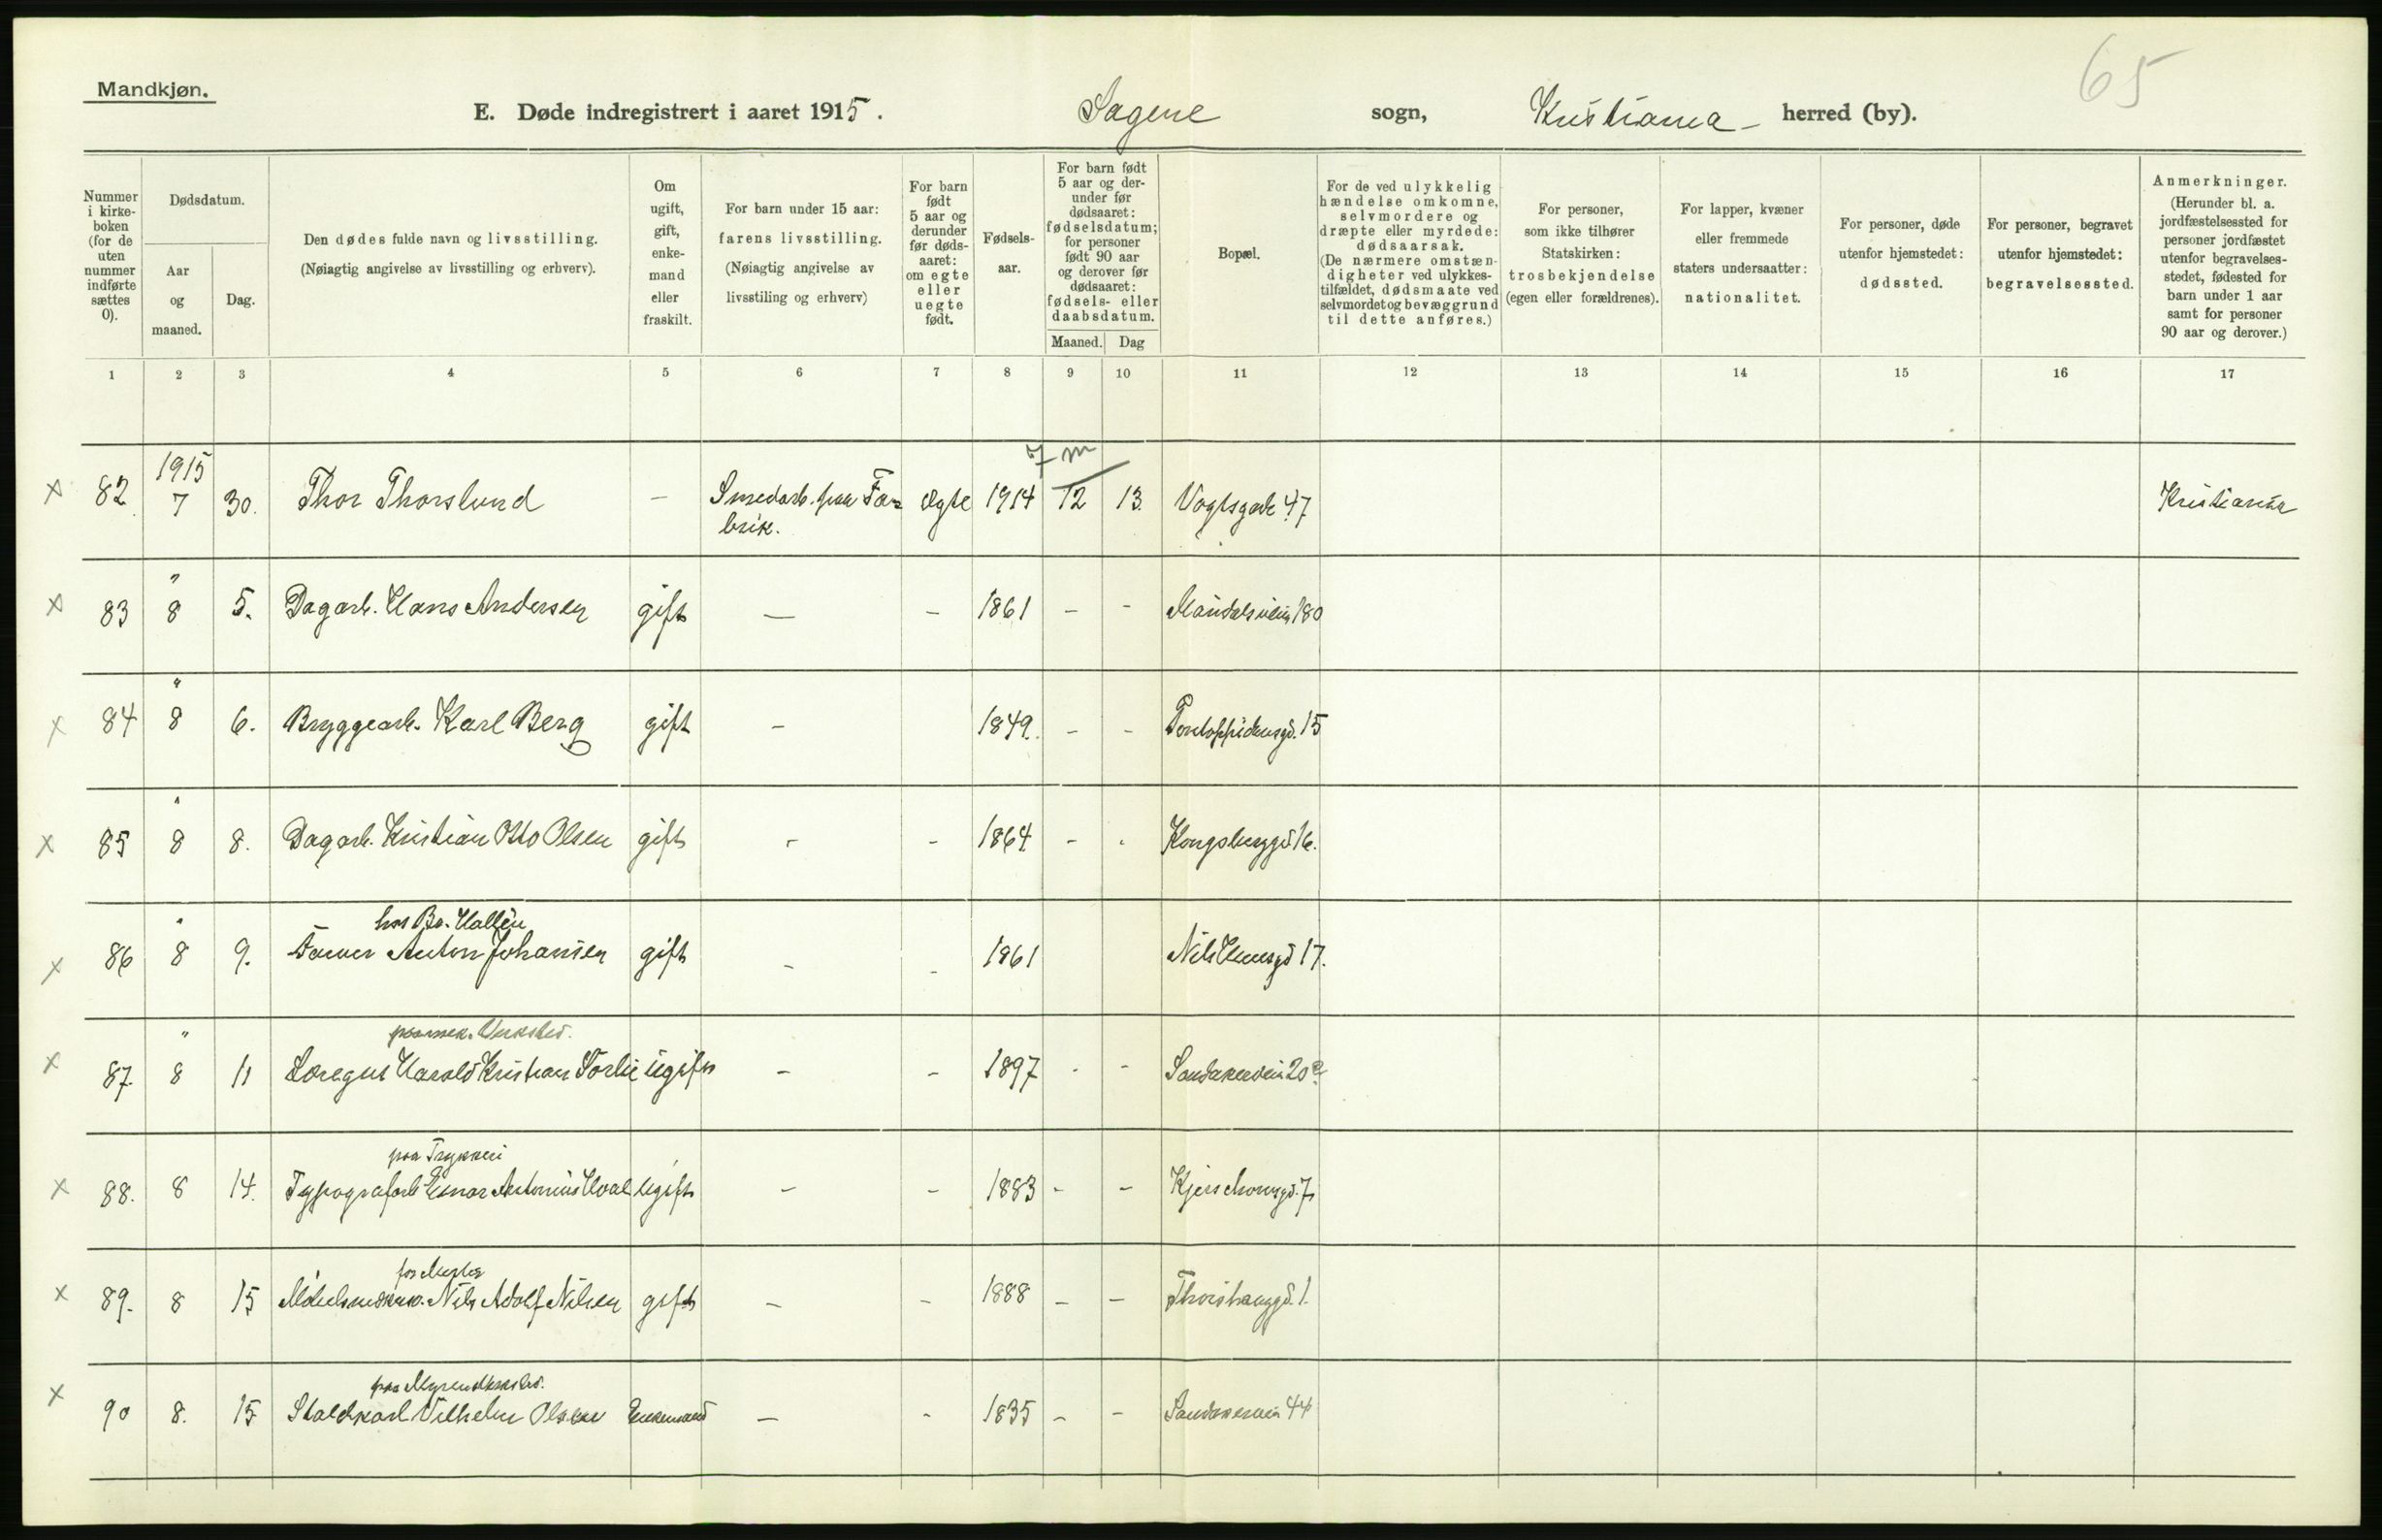 65
Mandkjøn.
E. Døde indregistrert i aaret 1915. Sagene sogn, Kristiania herred (by).
Nummer i kirkeboken (for de uten nummer indførte sættes 0).
Dødsdatum.
Aar og maaned.
Dag.
Den dødes fulde navn og livsstilling.
(Nøiagtig angivelse av livsstilling og erhverv).
Om ugift, gift, enkemand eller fraskilt.
For barn under 15 aar: farens livsstilling.
(Nøiagtig angivelse av livsstiling og erhverv)
For barn født 5 aar og derunder før dødsaaret: om egte eller uegte født.
Fødselsaar.
For barn født 5 aar og derunder før dødsaaret: fødselsdatum; for personer født 90 aar og derover før dødsaaret: fødsels- eller daabsdatum.
Maaned. Dag
Bopæl.
For de ved ulykkelig hændelse omkomne, selvmordere og dræpte eller myrdede: dødsaarsak.
(De nærmere omstændigheter ved ulykkestilfældet, dødsmaate ved selvmordet og bevæggrund til dette anføres.)
For personer, som ikke tilhører Statskirken: trosbekjendelse (egen eller forældrenes).
For lapper, kvæner eller fremmede staters undersaatter: nationalitet.
For personer, døde utenfor hjemstedet: dødssted.
For personer, begravet utenfor hjemstedet: begravelsessted.
Anmerkninger.
(Herunder bl. a. jordfæstelsessted for personer jordfæstet utenfor begravelsesstedet, fødested for barn under 1 aar samt for personer 90 aar og derover.)
1 2 3 4 5 6 7 8 9 10 11 12 13 14 15 16 17
7 m
1915
x 82 7 30. Thor Thorslund – Smedarb. paa Fabrik. Egte 1914 12 13. Vogtsgade 47 Kristiania
"
x 83 8 5. Dagarb. Hans Andersen gift — – 1861 – – Maridalsveien 180
"
x 84 8 6. Bryggearb. Karl Berg gift – 1849. – – Pontoppidansgd. 15
"
x 85 8 8. Dagarb. Kristian Otto Olsen gift – – 1864 – - Kongsberggd 16.
" hos Br. Hallén
x 86 8 9. Anton Johansen gift – – 1861 Nils Huusgd 17.
" paa mek. Verksted.
x 87. 8 11 Læregut Harald Kristian Sørlie ugift – – 1897 - - Sandakerveien 20
paa Trykkeri
x 88. 8 14. Typografarb. Einar Antonius Hval ugift – – 1883 – – Kjerschowsgd. 7
for Mester
x 89. 8 15 Nils Adolf Nilsen gift – – 1888 – – Thorshauggd. 1.
paa Myrens Verksted.
x 90 8. 15 Staldkarl Vilhelm Olsen Enkemand – - 1835 – – Sandakerveien 44